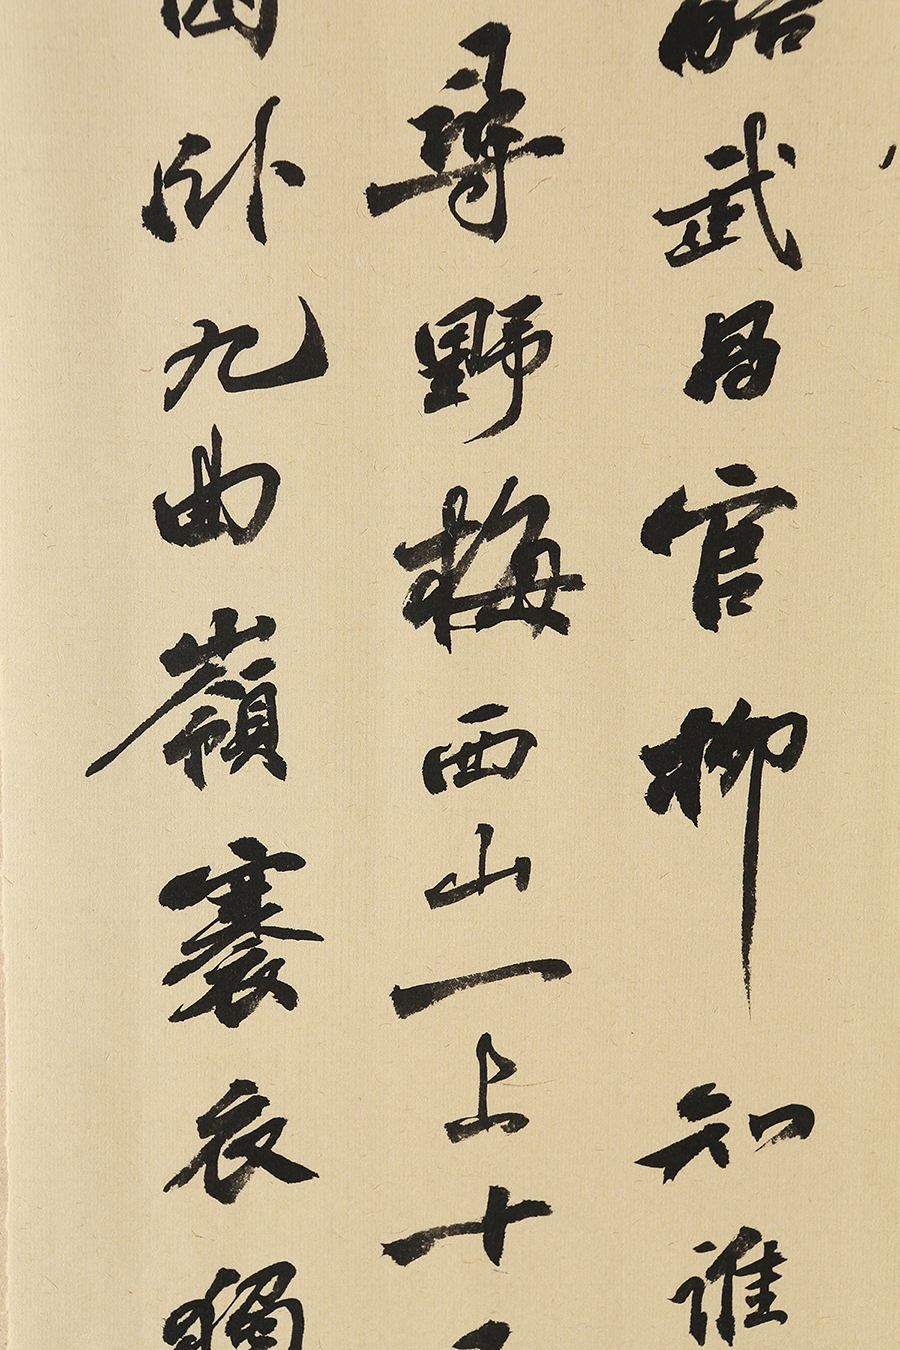 武昌官柳知誰
尋野梅西山一上十
臥九曲嶺褰衣獨